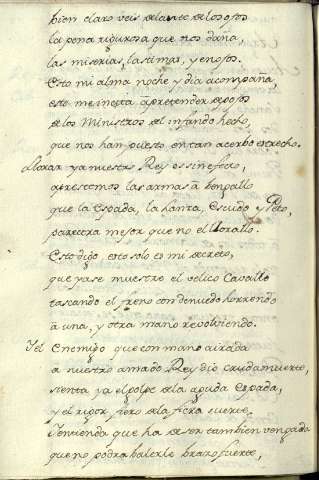 bien claro veis delante de los ojos
la pena rigurosa que nos daña,
las miserias, lastimas, y enojos.
Esto mi alma noche y dia acompaña
esto me incita a pretender
de los Ministros del infando hecho,
que nos han puesto en tan acerbo estrecho.
Llorar ya nuestro Rey es sin efeto,
aprestemos las armas a bengallo
que la Espada, la lanza, Escudo y Peto,
parecera mejor que no el llorallo.
Esto digo, esto solo es mi decreto,
que ya se muestre el velico Cavallo
tascando el freno con denuedo horrendo
a una, y otra mano revolviendo.
Y el Enemigo que con mano airada
a nuestro amado Rey dio cruda muerte,
sienta ya el golpe de la aguda Espada,
y el rigor fiero de la fiera suerte,
que ha de ser tambien vengada
que no podra balerle brazo fuerte,